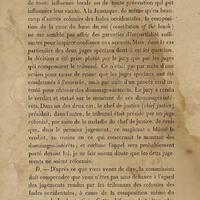 de toute influence locale ou de toute prévention qui pût
influencer leur vanité. A la Jamaïque, de même qu'en beau-
coup d'autres colonies des Indes occidentales, la composi-
tion de la cour du banc du roi (constitution of the bench)
ne me semble pas offrir des garanties d'impartialité suffi-
santes pour inspirer confiance aux accusés. Mais, dans le cas
particulier des deux juges spéciaux dont il est ici question,
la décision a été prise plutôt par le jury que par les juges
qui composaient le tribunal. Ce n'était pas par suite d'une
accusation pour crime que les juges spéciaux ont été
traduits à la barre, mais par suite d'un procès civil intenté
pour obtenir des dommages-intérêts. Le jury a rendu
le verdict et statué sur le montant de ces dommages-intérêts.
Dans un des deux cas, le chef de justice (chief justice)
présidait; dans l'autre, le tribunal était présidé par un juge
colonial, par suite de la maladie du chef de justice. Je crois
que, dans le premier jugement, ce magistrat a blâmé le
verdict, au moins en ce qui concernait le montant des
dommages-intérêts; et comme l'appel sera probablement
porté devant lui, je ne fais aucun doute que les deux juge-
ments ne soient réformés.
D. — D'après ce que vous venez de dire, la commission
doit comprendre que vous n'êtes pas sans défiance à l'égard
des jugements rendus par les tribunaux des colonies des
Indes occidentales, à cause de la composition vicieuse de